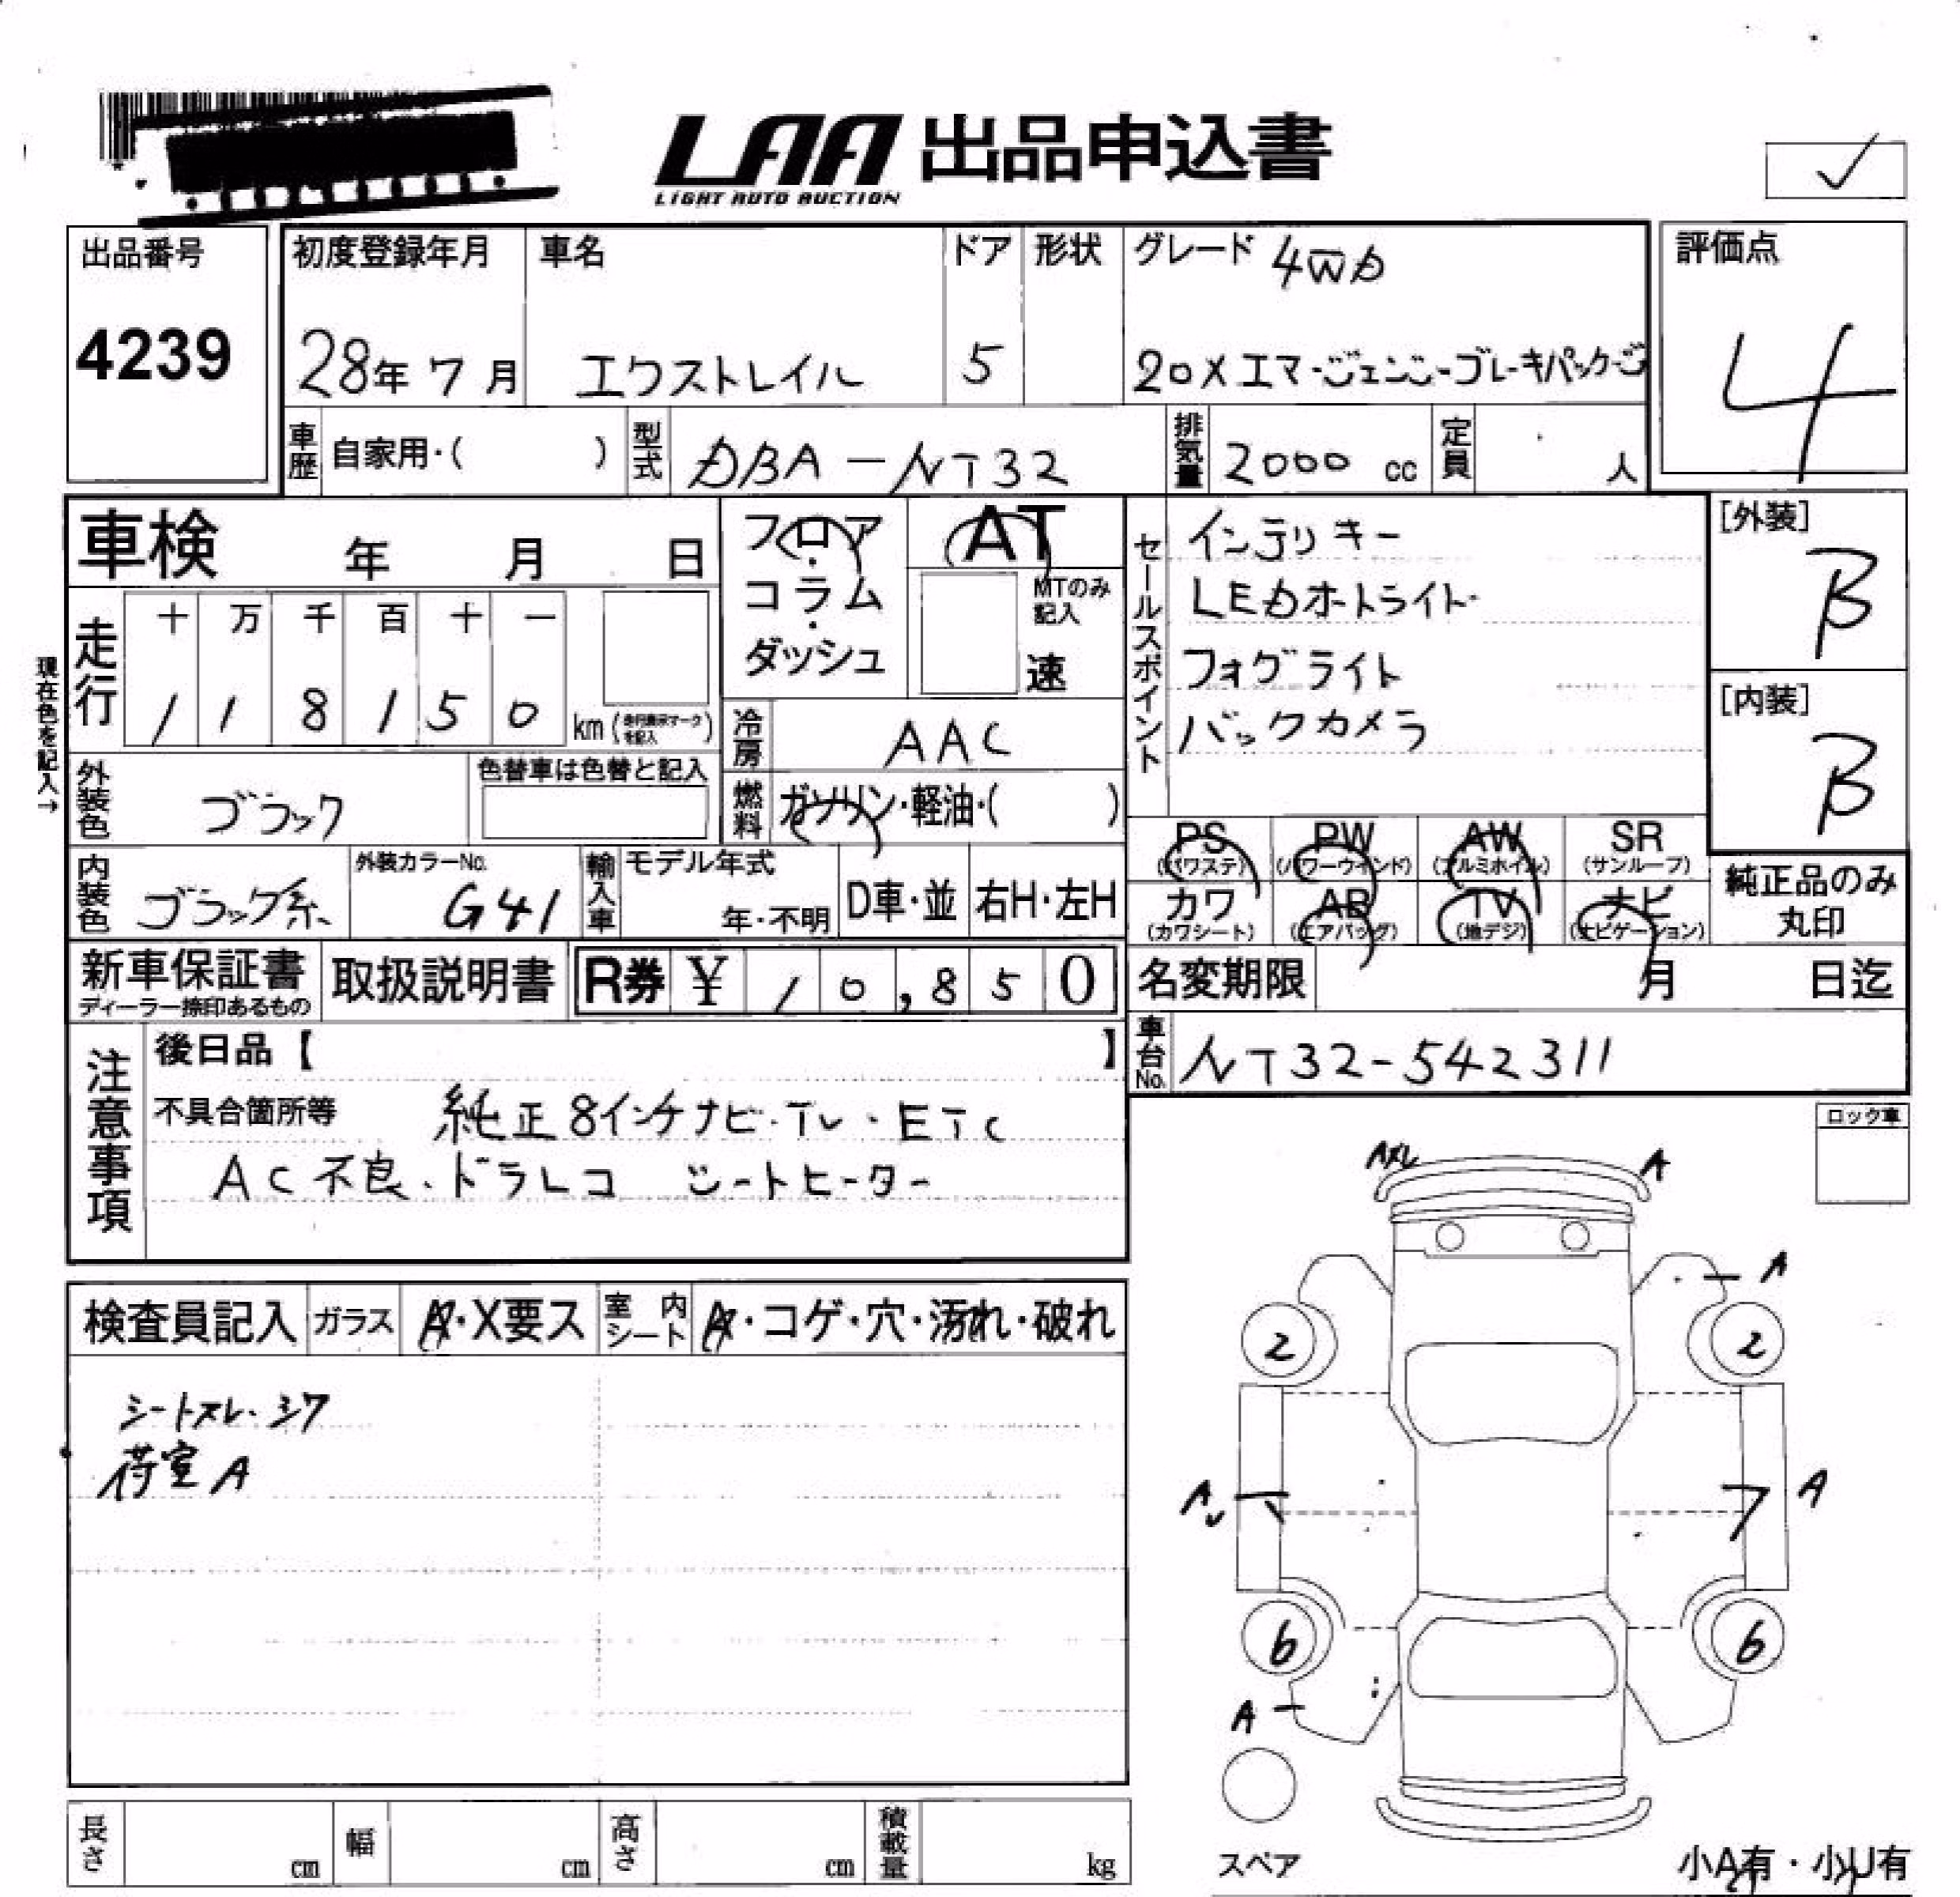 LAA 出品申込書
LIGHT AUTO AUCTION
出品番号
4239
初度登録年月
28年 7月
車名
エクストレイル
ドア
5
形状
グレード 4WD
20X エマージェンシーブレーキパッケージ
評価点
4
車歴 自家用・( )
型式 DBA-NT32
排気量 2000 cc
定員 人
車検 年 月 日
フロア・コラム・ダッシュ
AT
MTのみ記入
速
セールスポイント
インテリキー
LEDオートライト
フォグライト
バックカメラ
[外装]
B
[内装]
B
現在色を記入→
走行
十 万 千 百 十 一
1 1 8 1 5 0 km
冷房 AAC
外装色 ブラック
色替車は色替と記入
燃料 ガソリン・軽油・( )
内装色 ブラック系
外装カラーNo. G41
輸入車
モデル年式
年・不明
D車・並
右H・左H
PS (パワステ)
PW (パワーウインド)
AW (アルミホイル)
SR (サンルーフ)
カワ (カワシート)
AB (エアバッグ)
TV (地デジ)
ナビ (ナビゲーション)
純正品のみ
丸印
新車保証書
ディーラー捺印あるもの
取扱説明書
R券 ¥ 10,850
名変期限 月 日迄
車台No. NT32-542311
注意事項
後日品【 】
不具合箇所等 純正8インチナビ・TV・ETC
AC不良・ドラレコ シートヒーター
ロック車
検査員記入
ガラス A・X要ス
室内シート A・コゲ・穴・汚れ・破れ
シートスレ・シワ
荷室A
A
A
2
2
A
A
6
6
A
スペア
小A有・小U有
長さ cm
幅 cm
高さ cm
積載量 kg